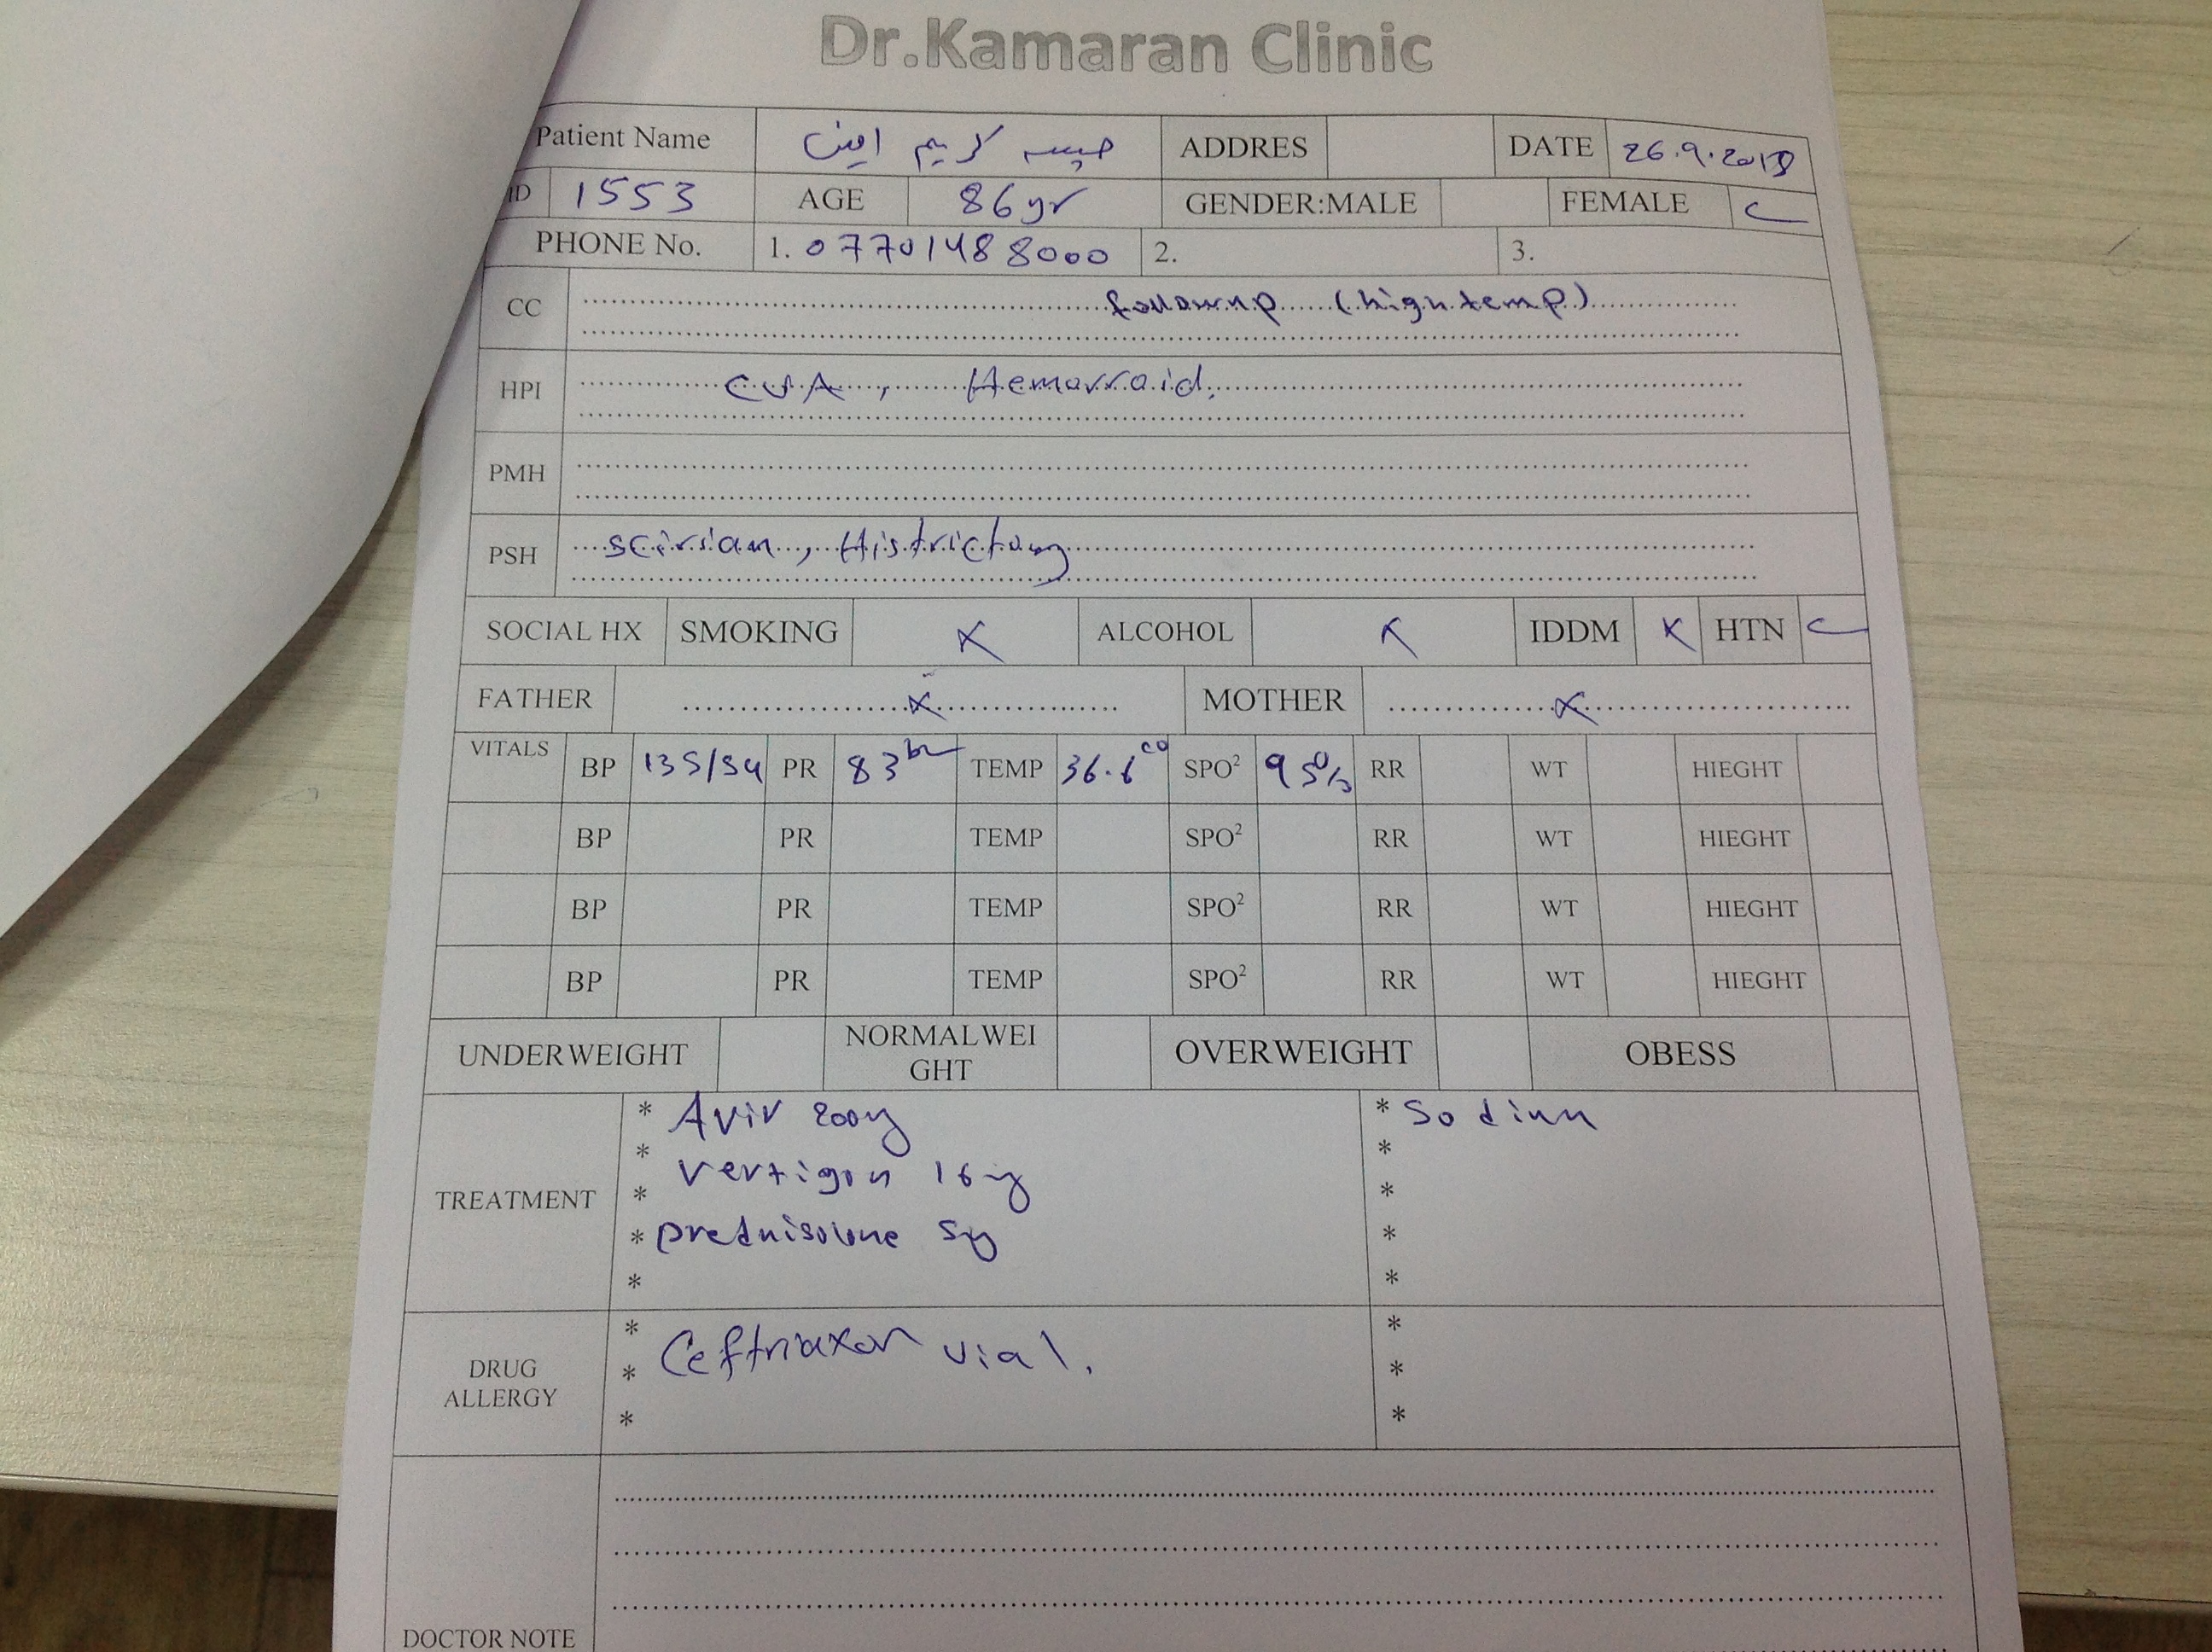 Dr.Kamaran Clinic
Patient Name حبيبه كريم امين ADDRES DATE 26.9.201
ID 1553 AGE 86yr GENDER:MALE FEMALE
PHONE No. 1. 07701488000 2. 3.
CC followup (high temp)
HPI CVA, Hemorraid.
PMH
PSH scirsian, Histrictomy
SOCIAL HX SMOKING x ALCOHOL x IDDM x HTN
FATHER x MOTHER x
VITALS BP 135/54 PR 83 TEMP 36.6 c° SPO² 95% RR WT HIEGHT
BP PR TEMP SPO² RR WT HIEGHT
BP PR TEMP SPO² RR WT HIEGHT
BP PR TEMP SPO² RR WT HIEGHT
UNDERWEIGHT NORMALWEI
GHT OVERWEIGHT OBESS
TREATMENT
* Avir 200mg * Sodium
* *
* Vertigon 16mg *
* prednisolone 5mg *
* *
DRUG
ALLERGY
* Ceftriaxon vial. *
* *
* *
DOCTOR NOTE